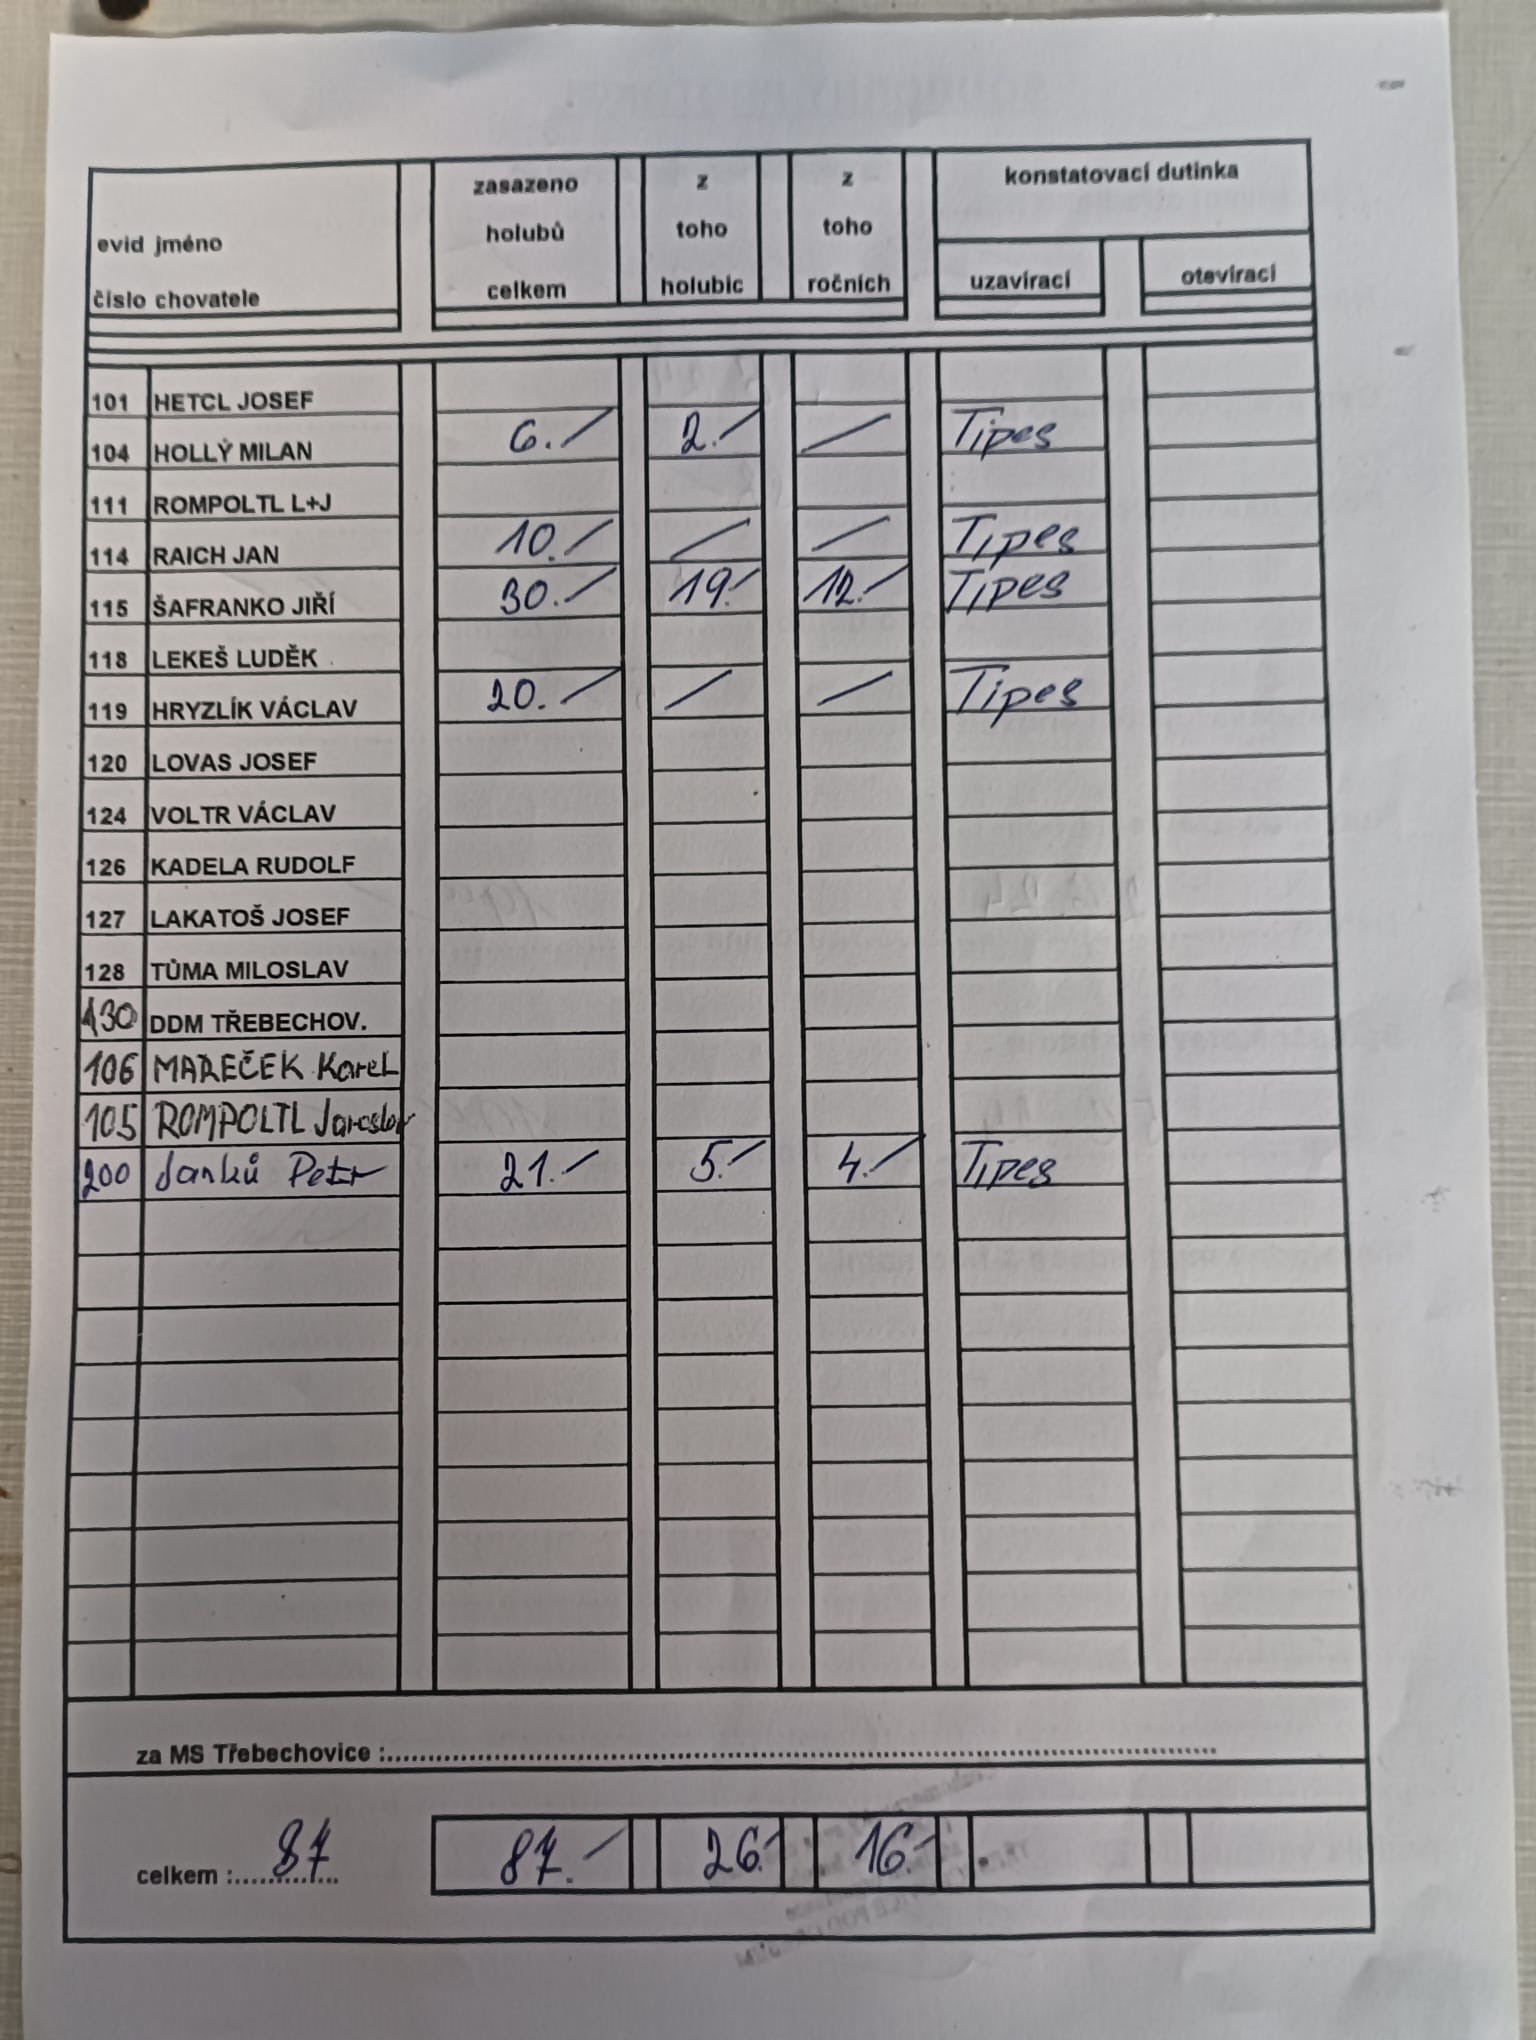 evid jméno
číslo chovatele
zasazeno
holubů
celkem
z
toho
holubic
z
toho
ročních
konstatovací dutinka
uzavírací
otevírací
101 HETCL JOSEF
104 HOLLÝ MILAN 6.- 2.- - Tipes
111 ROMPOLTL L+J
114 RAICH JAN 10.- - - Tipes
115 ŠAFRANKO JIŘÍ 30.- 19.- 12.- Tipes
118 LEKEŠ LUDĚK
119 HRYZLÍK VÁCLAV 20.- - - Tipes
120 LOVAS JOSEF
124 VOLTR VÁCLAV
126 KADELA RUDOLF
127 LAKATOŠ JOSEF
128 TŮMA MILOSLAV
130 DDM TŘEBECHOV.
106 MAREČEK Karel
105 ROMPOLTL Jaroslav
200 Janků Petr 21.- 5.- 4.- Tipes
za MS Třebechovice :
celkem : 87 87.- 26.- 16.-